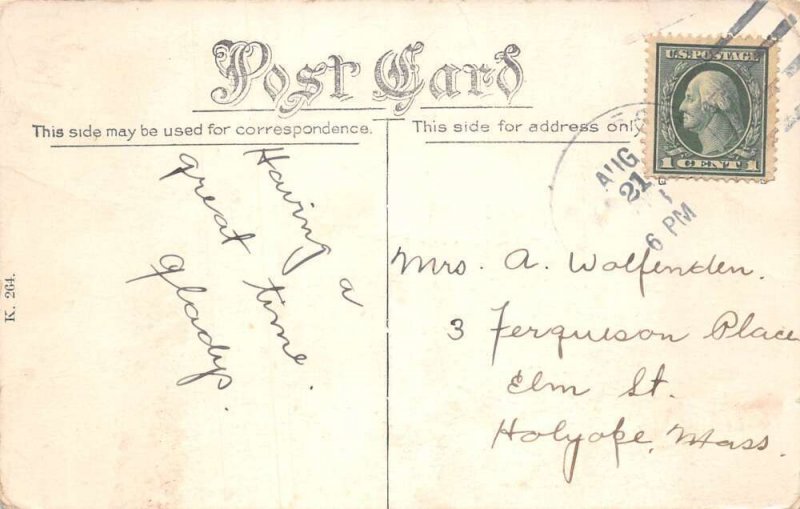 Post Card
This side may be used for correspondence.
This side for address only
U.S. POSTAGE
1 CENT 1
AUG
21
6 PM
Having a
great time.
Gladys.
Mrs. A. Wolfenden.
3 Ferguson Place
Elm St.
Holyoke, Mass.
K. 264.